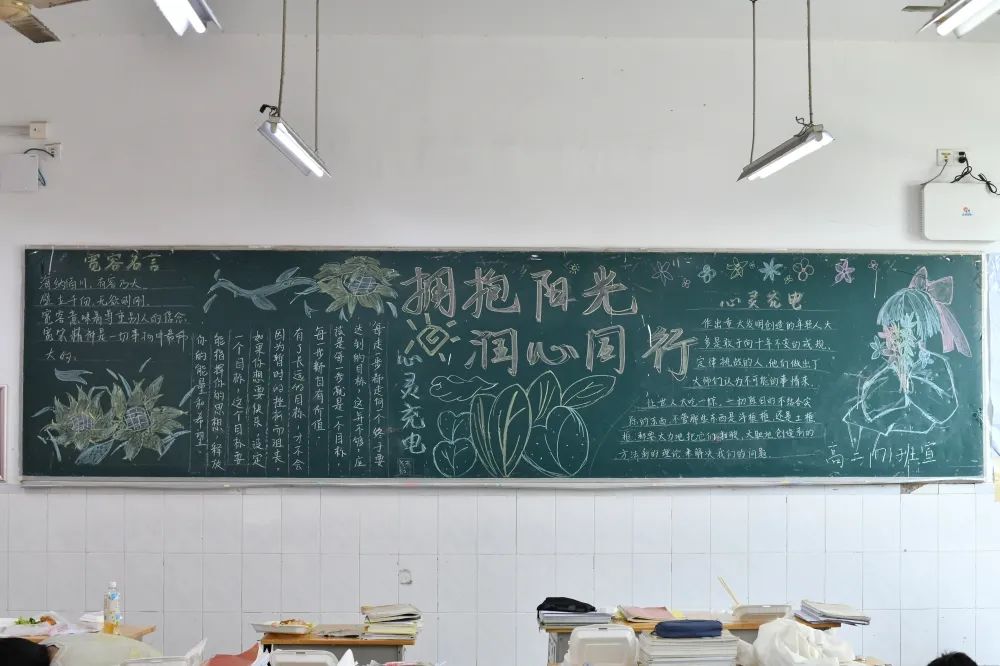 宽容名言
海纳百川，有容乃大
壁立千仞，无欲则刚
宽容意味着尊重别人的信念
宽容精神是一切事物中最伟
大的。
拥抱阳光
润心同行
心灵充电
每走一步都走向个终于要
达到的目标，这并不够，应
该是每一步就是一个目标，
每一步都自有价值。
有了长远的目标，才不会
因为暂时的挫折而沮丧。
如果你想要快乐，设定
一个目标，这个目标要
能指挥你的思想，释放
你的能量和希望。
心灵充电
作出重大发明创造的年轻人大
多是敢于向千年不变的戒规、
定律挑战的人，他们做出了
大师们认为不可能的事情来，
让世人大吃一惊。一切盲目的不结合实
际的东西，不管那些东西是洋框框，还是土框
框，都要大力地把它们打破，大胆地创造新的
方法新的理论来解决我们的问题
高二(7)班宣